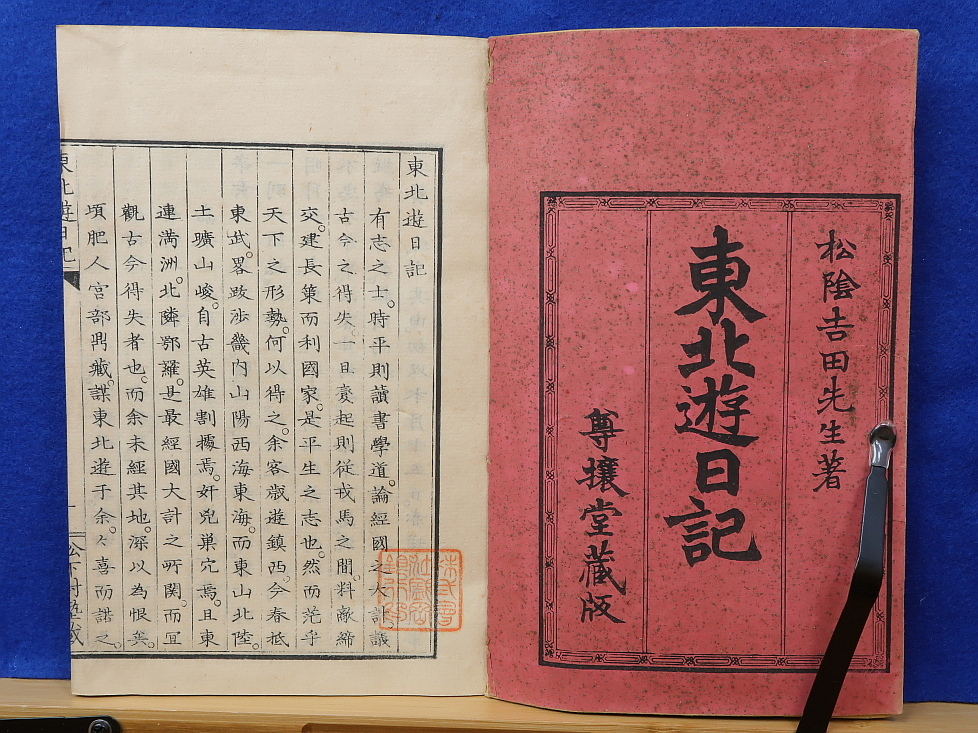 松陰吉田先生著
東北遊日記
尊攘堂藏版
東北遊日記
有志之士。時平則讀書學道。論經國之大計。議
古今之得失。一旦變起則從戎馬之間。料敵締
交。建長策而利國家。是平生之志也。然而茫乎
天下之形勢。何以得之。余客歲遊鎮西。今春抵
東武。畧跋涉畿內山陽西海東海。而東山北陸。
土曠山峻。自古英雄割據焉。奸兇巢穴焉。且東
連満洲。北隣鄂羅。是最經國大計之所關。而宜
觀古今得失者也。而余未經其地。深以為恨矣。
頃肥人宮部鼎藏。謀東北遊于余。々喜而諾之。
東北遊日記
一
松下村塾藏